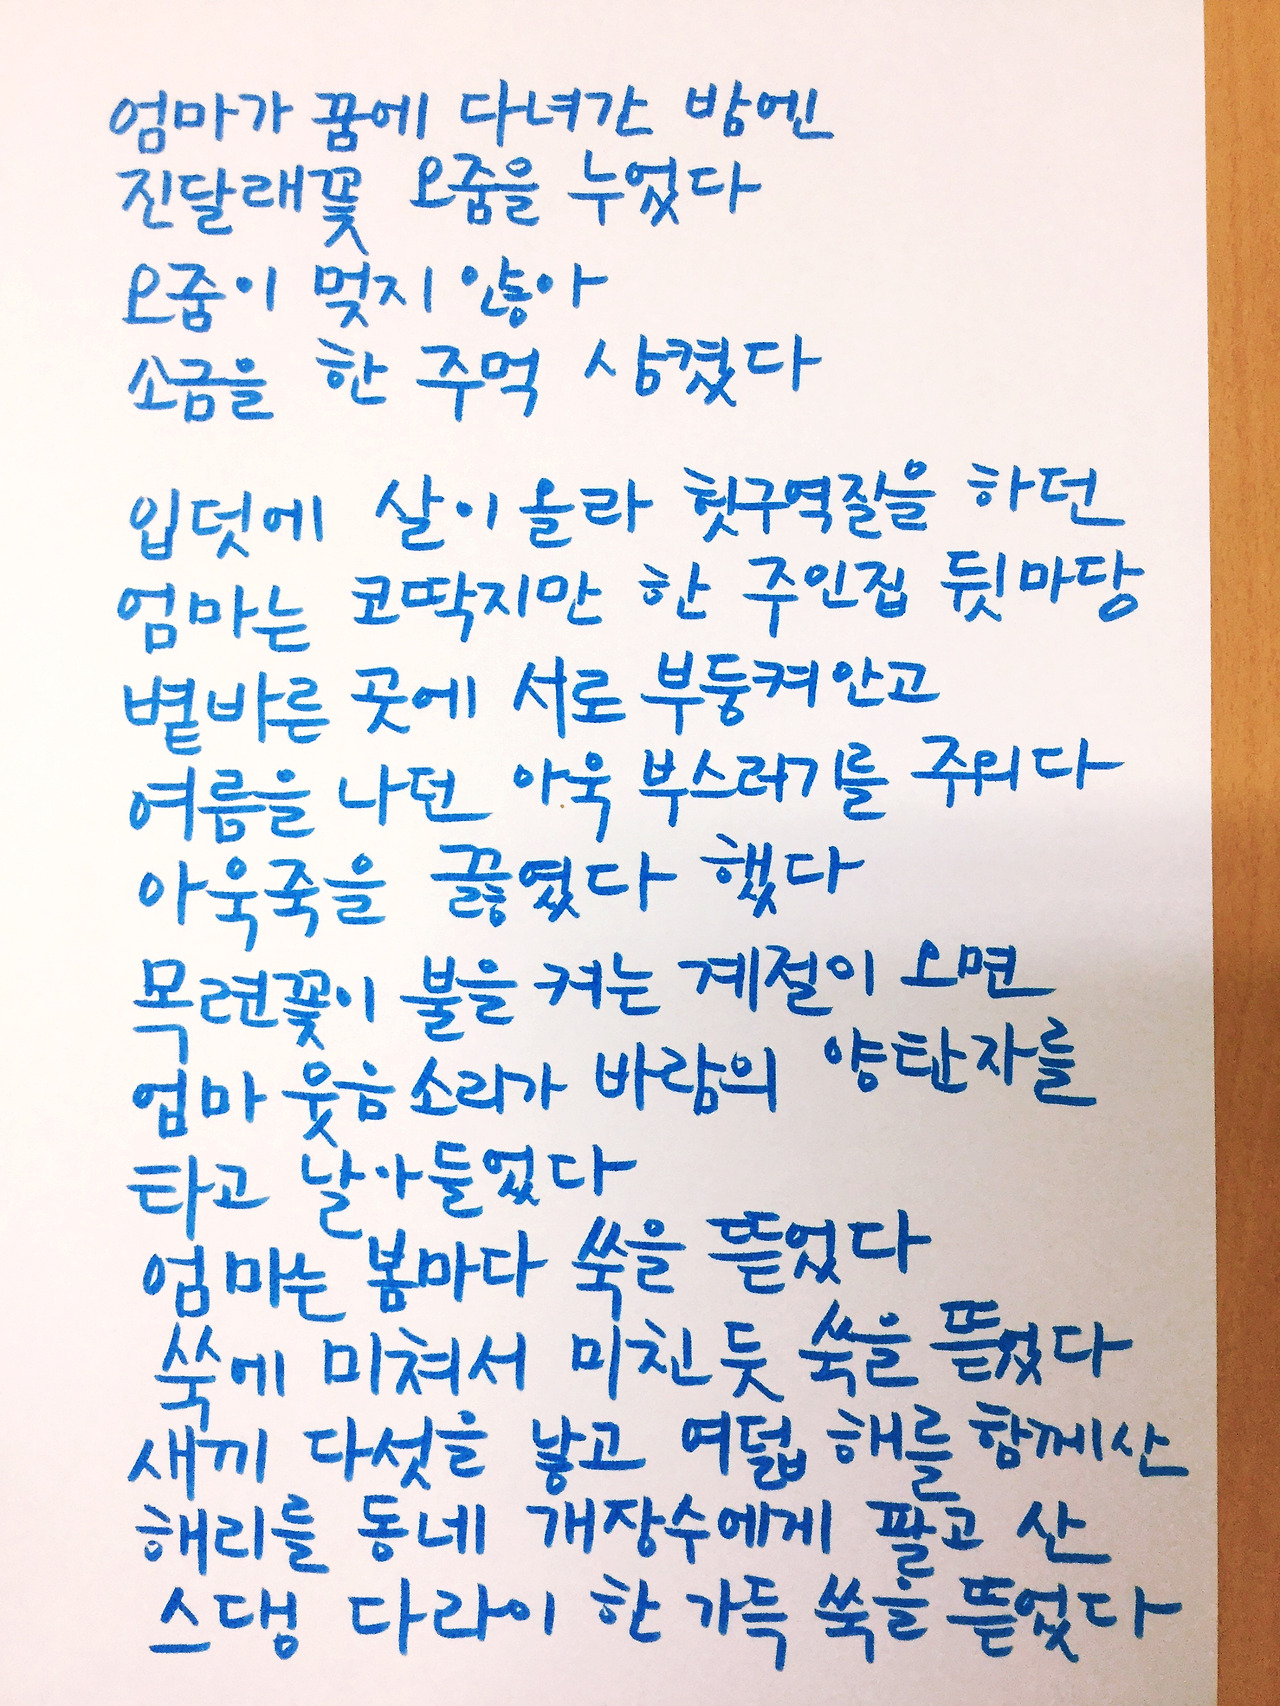 엄마가 꿈에 다녀간 밤엔
진달래꽃 오줌을 누었다
오줌이 멎지 않아
소금을 한 주먹 삼켰다
입덧에 살이 올라 헛구역질을 하던
엄마는 코딱지만 한 주인집 뒷마당
볕바른 곳에 서로 부둥켜안고
여름을 나던 아욱 부스러기를 주워다
아욱죽을 끓였다 했다
목련꽃이 불을 켜는 계절이 오면
엄마 웃음소리가 바람의 양탄자를
타고 날아들었다
엄마는 봄마다 쑥을 뜯었다
쑥에 미쳐서 미친듯 쑥을 뜯었다
새끼 다섯을 낳고 여덟 해를 함께산
해리를 동네 개장수에게 팔고 산
스댕 다라이 한 가득 쑥을 뜯었다